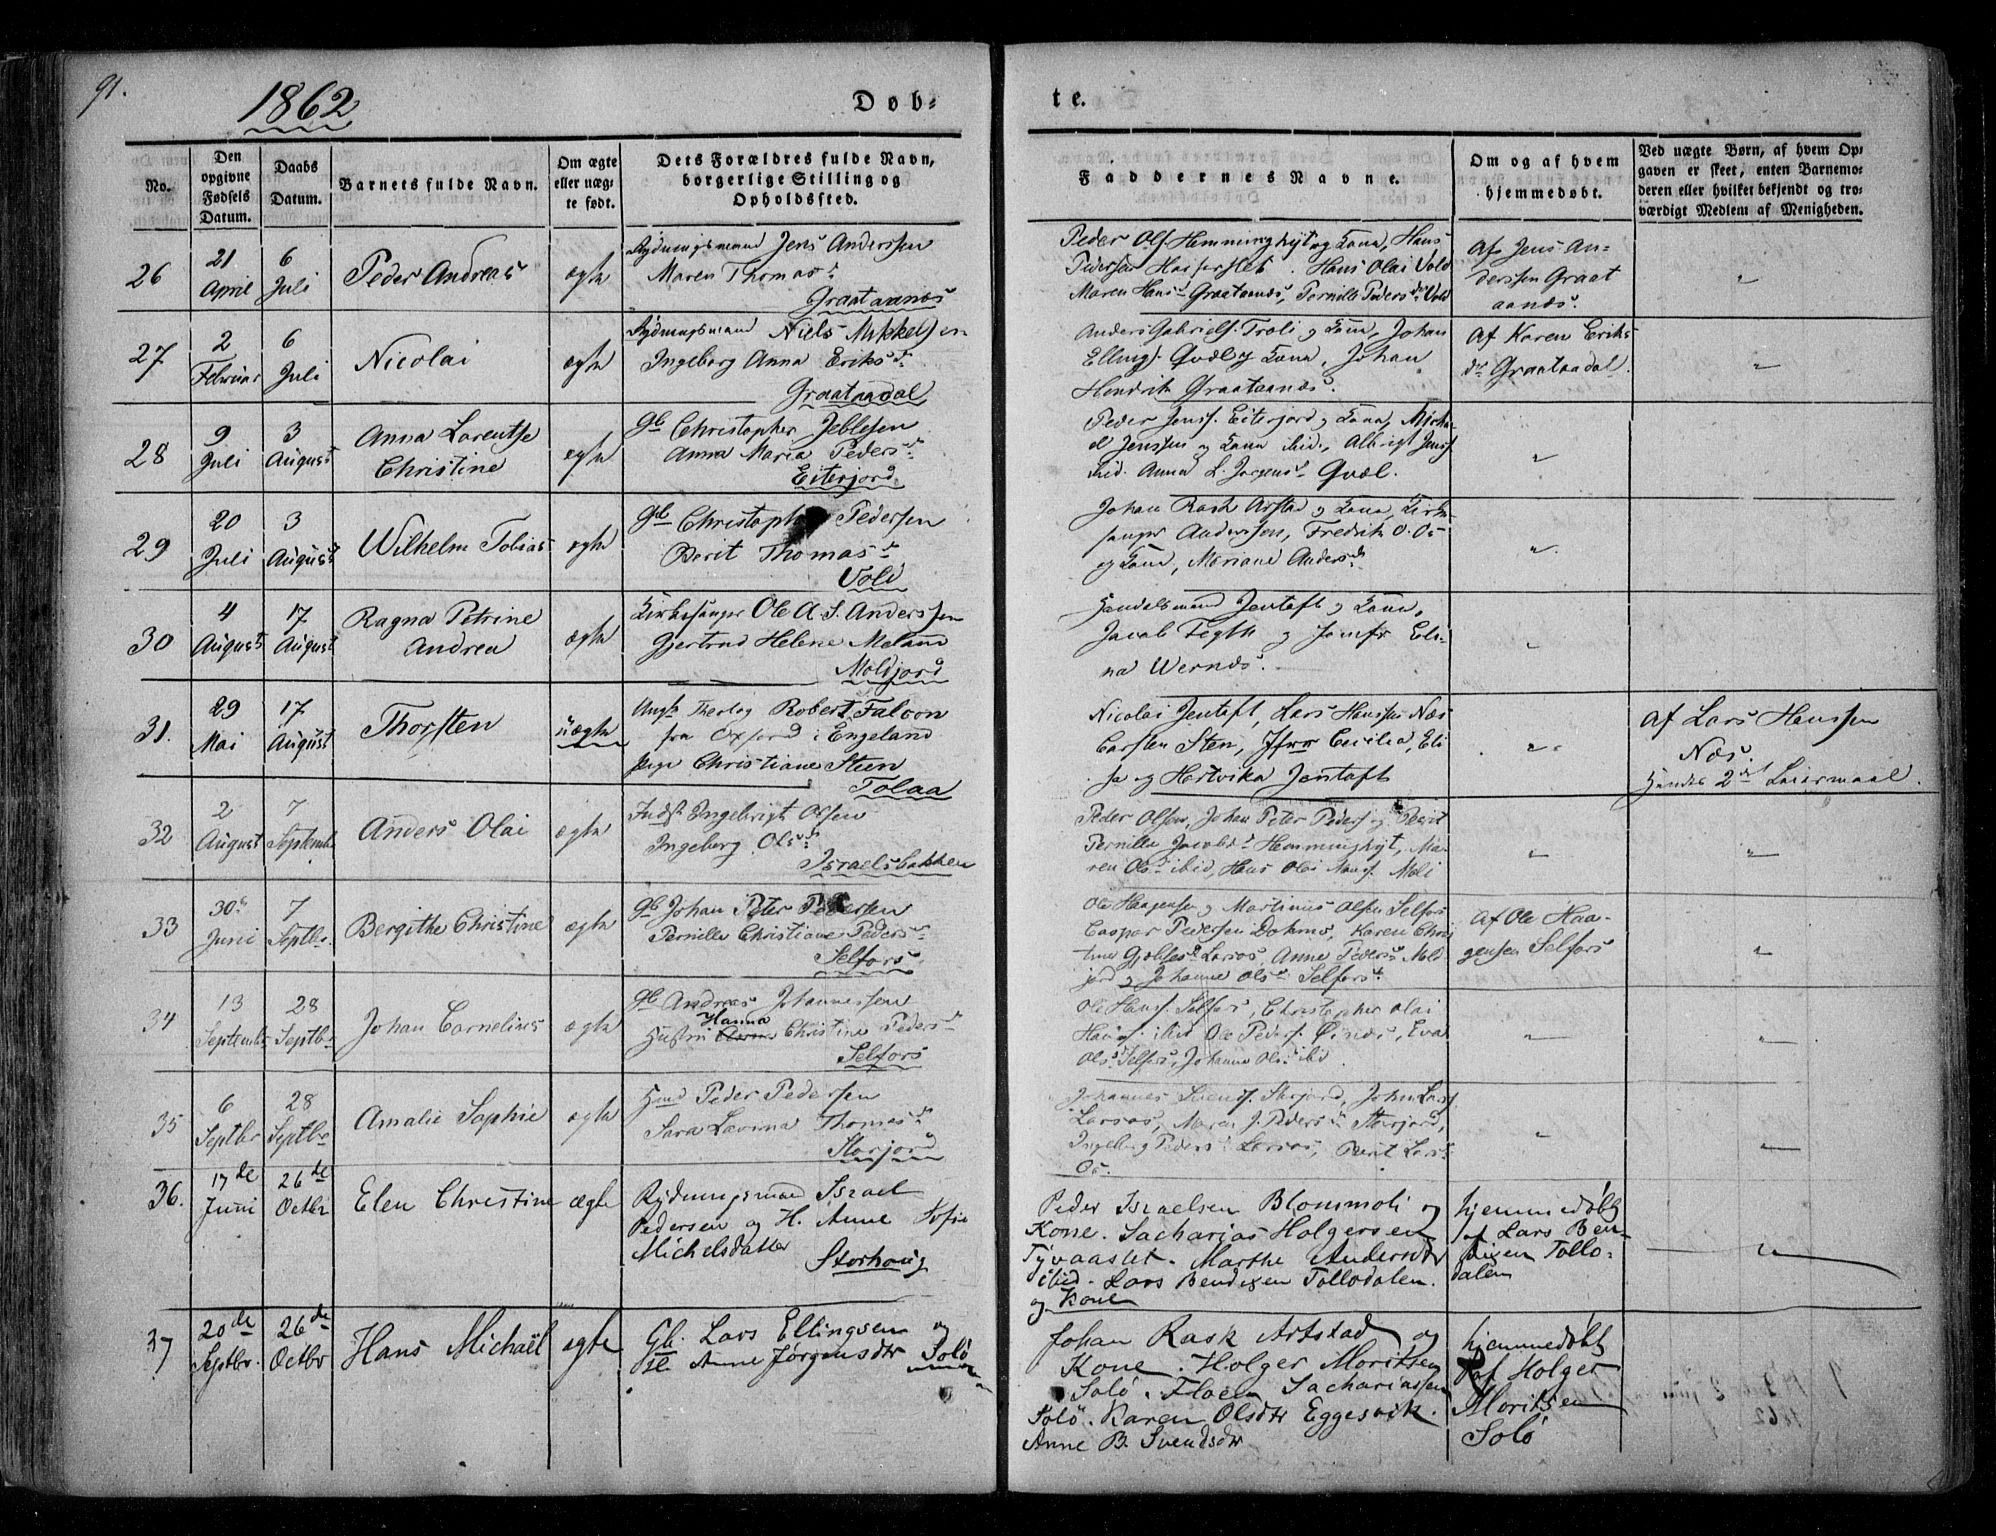 91.
1862
Døb-
te.
No.
Den opgivne Fødsels Datum.
Daabs Datum.
Barnets fulde Navn.
Om ægte eller uæg-te født.
Dets Forældres fulde Navn, borgerlige Stilling og Opholdssted.
Faddernes Navne.
Om og af hvem hjemmedøbt.
Ved uægte Børn, af hvem Op-gaven er skeet, enten Barnemo-deren eller hvilket bekjendt og tro-værdigt Medlem af Menigheden.
26
21 April
6 Juli
Peder Andreas
ægte
Rydningsmand Jens Anderssen
Maren Thomasdr
Graataanæs
Peder Ols. Hemminghyt og Kone, Hans
Pedersen . Hans Olai Vold
Maren Hansdr Graataanæs, Pernille Pedersdr Vold
Af Jens An-
derssen Graat
aanæs.
"
27
2 Februar
6 Juli
Nicolai
ægte
Rydningsmand Niels Mikkelsen
Ingeborg Anna Eriksdr
Graataadal
Anders Gabriels. Troli og Kone, Johan
Ellings. Qvæl og Kone, Johan
Hendrik Graataanæs.
Af Karen Eriks
dr Graataadal.
"
28
9 Juli
3 August
Anna Lorentse
Christine
ægte
Gb Christopher Jeblesen
Anna Maria Pedersdr
Eiterjord
Peder Jenss. Eiterjord og Kone, Micha-
el Jenssen og Kone ibid., Albrigt Jenss.
ibid. Anna L. Qvæl.
"
29
20 Juli
3 August
Wilhelm Tobias
ægte
Gb Christopher Pedersen
Berit Thomasdr
Vold
Johan Rask Arstad og Kone, Kirke-
sanger Anderssen, Fredrik O. Os
og Kone, Mariane Andersdr
"
30
4 August
17 August
Ragna Petrine
Andrea
ægte
Kirkesanger Ole A. S. Anderssen
Gjertrud Helene Meland
Moldjord
Handelsmand Jentoft og Kone,
Jacob Fygth og Jomfr Eli-
na Wernæs.
"
31.
29 Mai
17 August
Thorsten
uægte
Ungk. Theolog Robert Falcon
fra Oxford i Engeland
Pige Christiane Steen
Tolaa
Nicolai Jentoft, Lars Hanssen Næs
Carsten Sten, Jfrr Cecilia, Eli
sa og Hertvika Jentoft
"
Af Lars Hanssen
Næs.
Hendes 2det Leiermaal.
32
2 August
7 September
Anders Olai
ægte
Inds. Ingebrigt Olsen
Ingeborg Olsdr
Israelsbakken
Peder Olsen, Johan Peter Peders. og Berit
Pernille Jacobsdr Hemminghyt, Ma-
ren Olsdr ibid, Hans Olai Hans. Moli
"
"
33
30te Juni
7 Septbr.
Bergithe Christine
ægte
Gb Johan Peter Pedersen
Pernille Christiane Pedersdr
Selfors
Ole Haagensen og Martinus Olsen Selfors
Caspar Pedersen Dohmo, Karen Chris
tine Larsos, Anne Pedersdr Mol
jord og Johanne Olsdr Selfors.
Af Ole Haa-
gensen Selfors
"
34
13 September
28 Septbr
Johan Cornelius
ægte
Gb Andreas Johannessen
Hanna
Hustru Christine Pedersdr
Selfors
Ole Hans. Selfors, Christopher Olai
Hans. ibid Ole Peders. Øinæs, Eva
Olsdr Selfors, Johanna Olsdr ibid.
"
"
35
6 Septbr
28 Septbr
Amalie Sophie
ægte
Hmd Peder Pedersen
Sara Lovina Thomasdr
Storjord
Johannes Svends. Storjord, John Lars.
Larsos, Maren J. Pedersdr Storjord,
Ingeborg Pedersdr Larsos, Berit Larsdr
Os.
"
"
36.
17de Juni
26de Octbr
Elen Christine
ægte
Rydningsmand Israel
Pedersen og H. Anne Sofie
Michelsdatter
Storhoug
Peder Israelsen Blommoli og
Kone. Sacharias Holgersen
Tyvaaslet. Marthe Andersdtr
ibid. Lars Bendixen Tollodalen.
og Kone
hjemmedøbt
af Lars Ben
dixen Tollo-
dalen
"
37
20de Septbr.
26de Octbr
Hans Michaël
ægte
Gb. Lars Ellingsen og
H. Anne Jørgensdtr Solö
Johan Rask Artstad og
Kone. Holger Moritsen
Solö. Floen Sachariassen
Solö. Karen Olsdtr Eggesvik.
Anne B. Svendsdtr
hjemmedøbt
af Holger
Moritsen
Solö